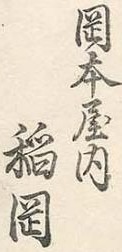 岡本屋内
稲岡